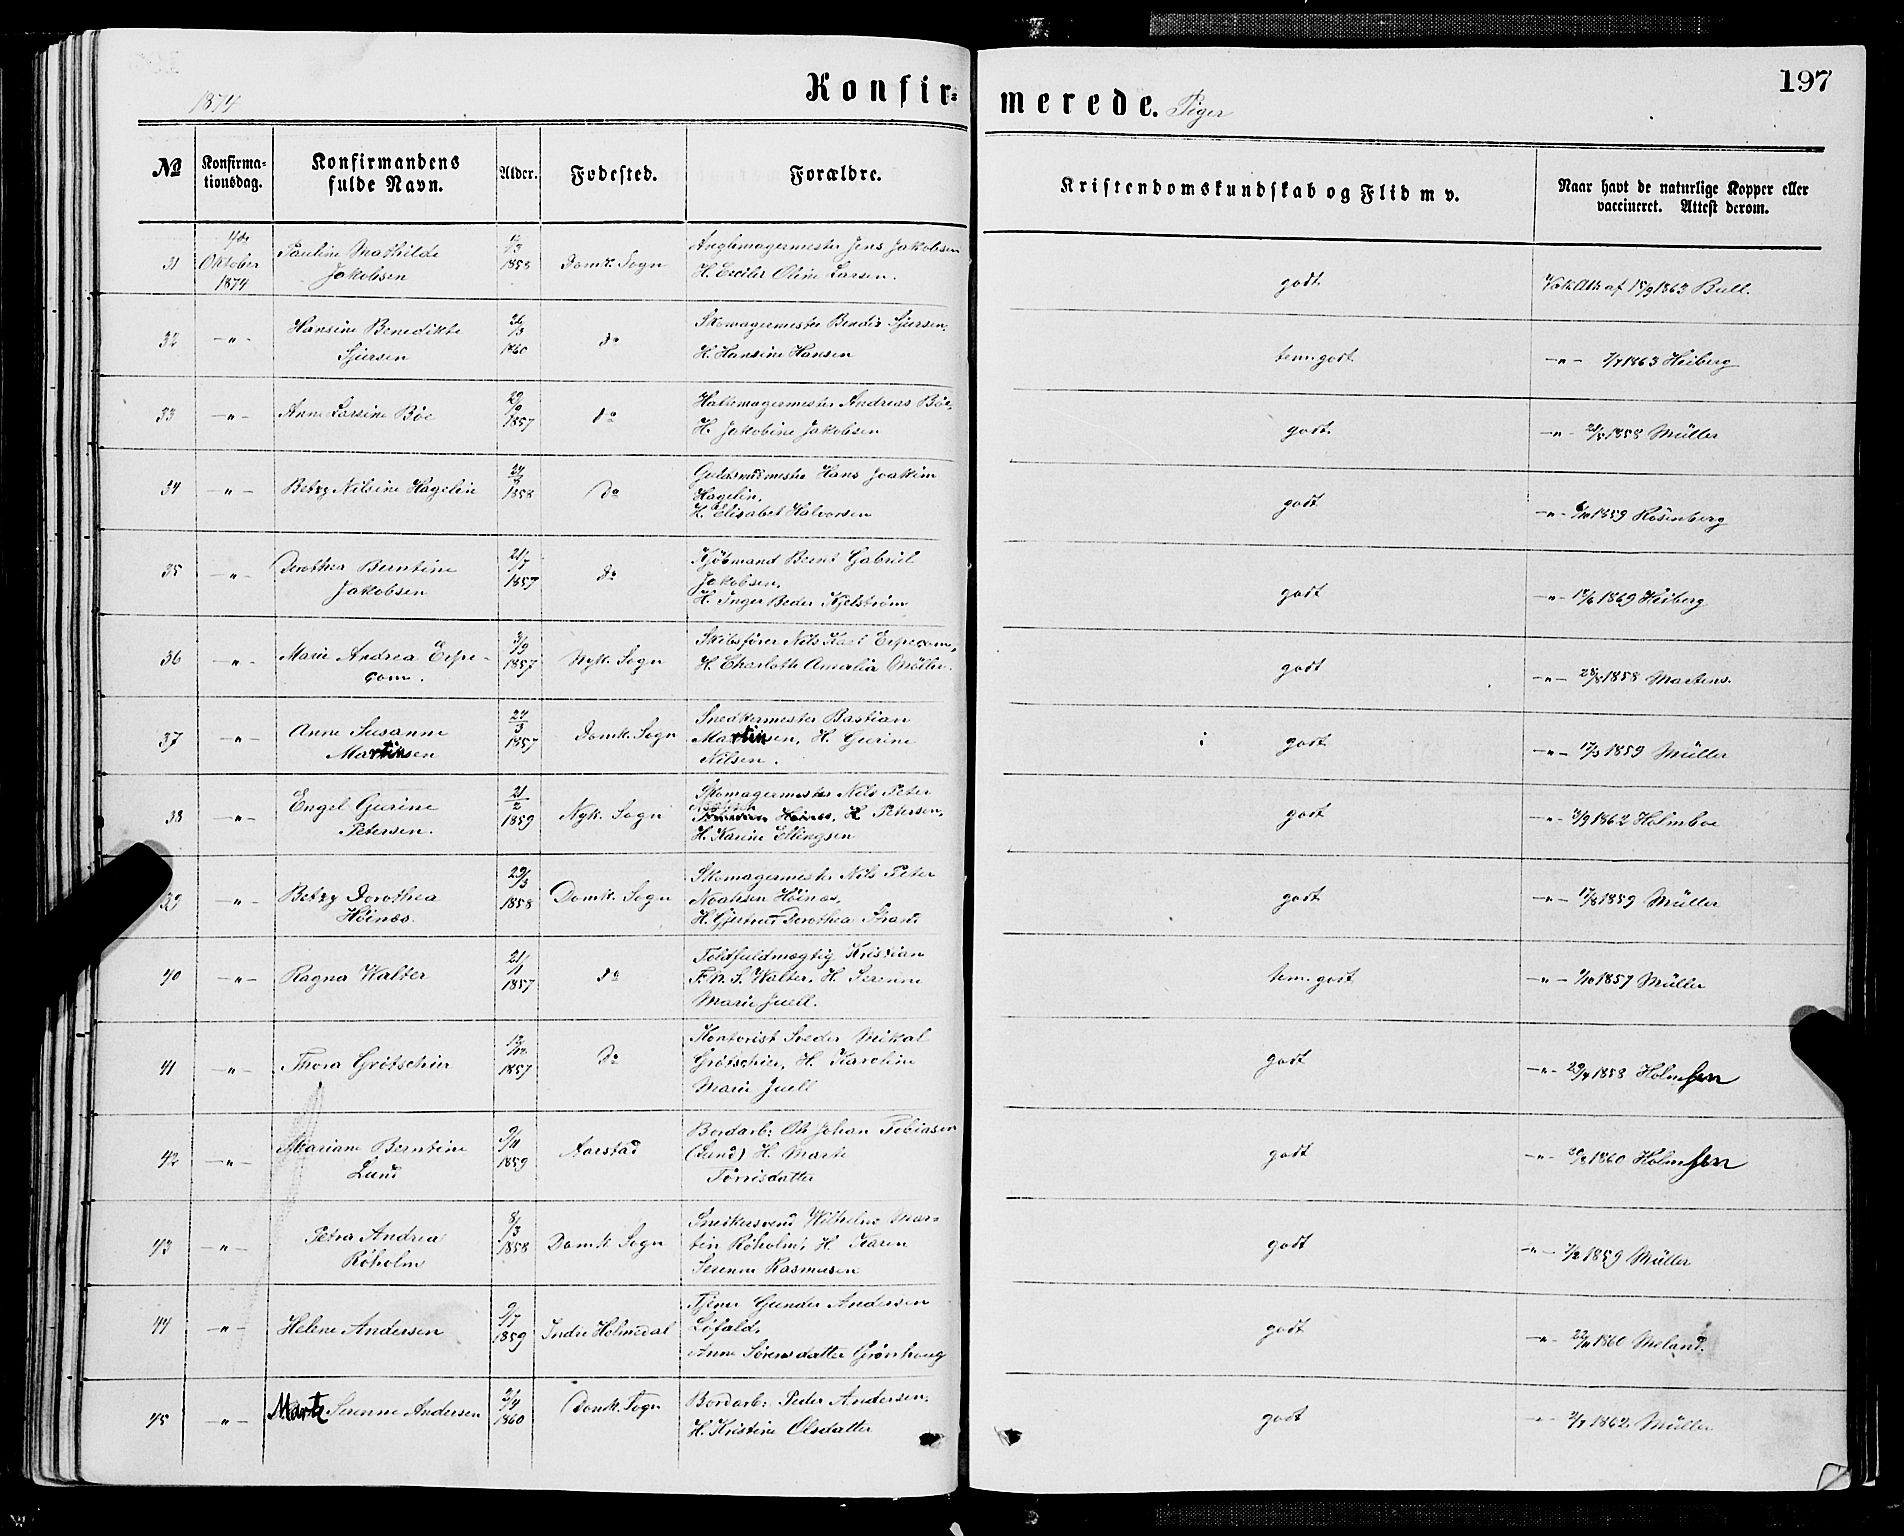 197
1874
Konfir= merede. Piger
No
Konfirma-
tionsdag.
Konfirmandens
fulde Navn.
Alder.
Fødested.
Forældre.
Kristendomskundskab og Flid m v.
Naar havt de naturlige Kopper eller
vaccineret. Attest derom.
31 Oktober 1874
Pauline Mathilde
Jakobsen
1858
Domk. Sogn
Jens Jakobsen
H. Oline Larsen.
godt
1863 Bull.
32 -"-
Hansine Benedikte
Sjursen
26/3 1860
do
Skomagermester Bendix Sjursen,
H. Hansine Hansen
tem. godt
-"- 1863 Heiberg
33 -"-
Anne Larsine Böe
1857
do
Hattemagermester Andreas Böe,
H. Jakobine Jakobsen
godt
-"- 1858 Müller
34 -"-
Betzy Nilsine Hagelin
1858
do
Guldsmedmester Hans Joakim
Hagelin,
H. Elisabet Halvorsen
godt
-"- 1859 Rosenberg
35 -"-
Dorothea Berntine
Jakobsen
21/7 1857
do
Kjöbmand Bernt Gabriel
Jakobsen,
H. Inger Beder Kjelström
godt
-"- 1869 Heiberg
36 -"-
Marie Andrea Erpe-
com.
3/9 1857
Nyk. Sogn
Skibsförer Nils Karl Erpecom,
H. Charlotte Amalia Möller.
godt
-"- 1858 Martens.
37 -"-
Anne Susanne
Martinsen
24/3 1857
Domk. Sogn
Snedkermester Bastian
Martinsen, H. Gurine
Nilsen.
godt
-"- 1859 Müller
38 -"-
Engel Gurine
Petersen.
21/2 1859
Nyk. Sogn
Skomagermester Nils Peter
Petersen,
H. Karine Ellingsen
godt
-"- 1862 Holmboe
39 -"-
Betzy Dorothea
Höines.
29/3 1858
Domk. Sogn
Skomagermester Nils Peter
Noahsen Höines,
H. Gjertrud Dorothea
godt
-"- 1859 Müller
40 -"-
Ragna Walter
21/1 1857
do
Toldfuldmægtig Kristian
F. N. S. Walter, H. Serenne
Marie Juell.
tem. godt
-"- 1857 Müller
41 -"-
Thora Grötschier
1857
do
Kontorist Sveder Mikal
Grötschier, H. Karoline
Marie Juell
godt
-"- 29/4 1858 Holmsen
42 -"-
Mariane Berntine
Lund
9/11 1859
Aarstad
Bordarb: Ole Johan Tobiasen
(Lund) H. Marte
Törrisdatter
godt
-"- 1860 Holmsen
43 -"-
Petra Andrea
Röholm
8/3 1858
Domk. Sogn
Snedkersvend Wilhelm Mar=
tin Röholm, H. Karen
Serenne Rasmusen
godt
-"- 1859 Müller
44 -"-
Helene Andersen
9/7 1859
Indre Holmedal
Tjener Gunder Andersen
Löfald,
Anne Sörensdatter Grönhoug
godt
-"- 1860 Meland.
45 -"-
Marta Serenne Andersen
1860
Domk. Sogn
Bordarb: Peder Andersen,
H. Kristine Olsdatter
godt
1862 Müller